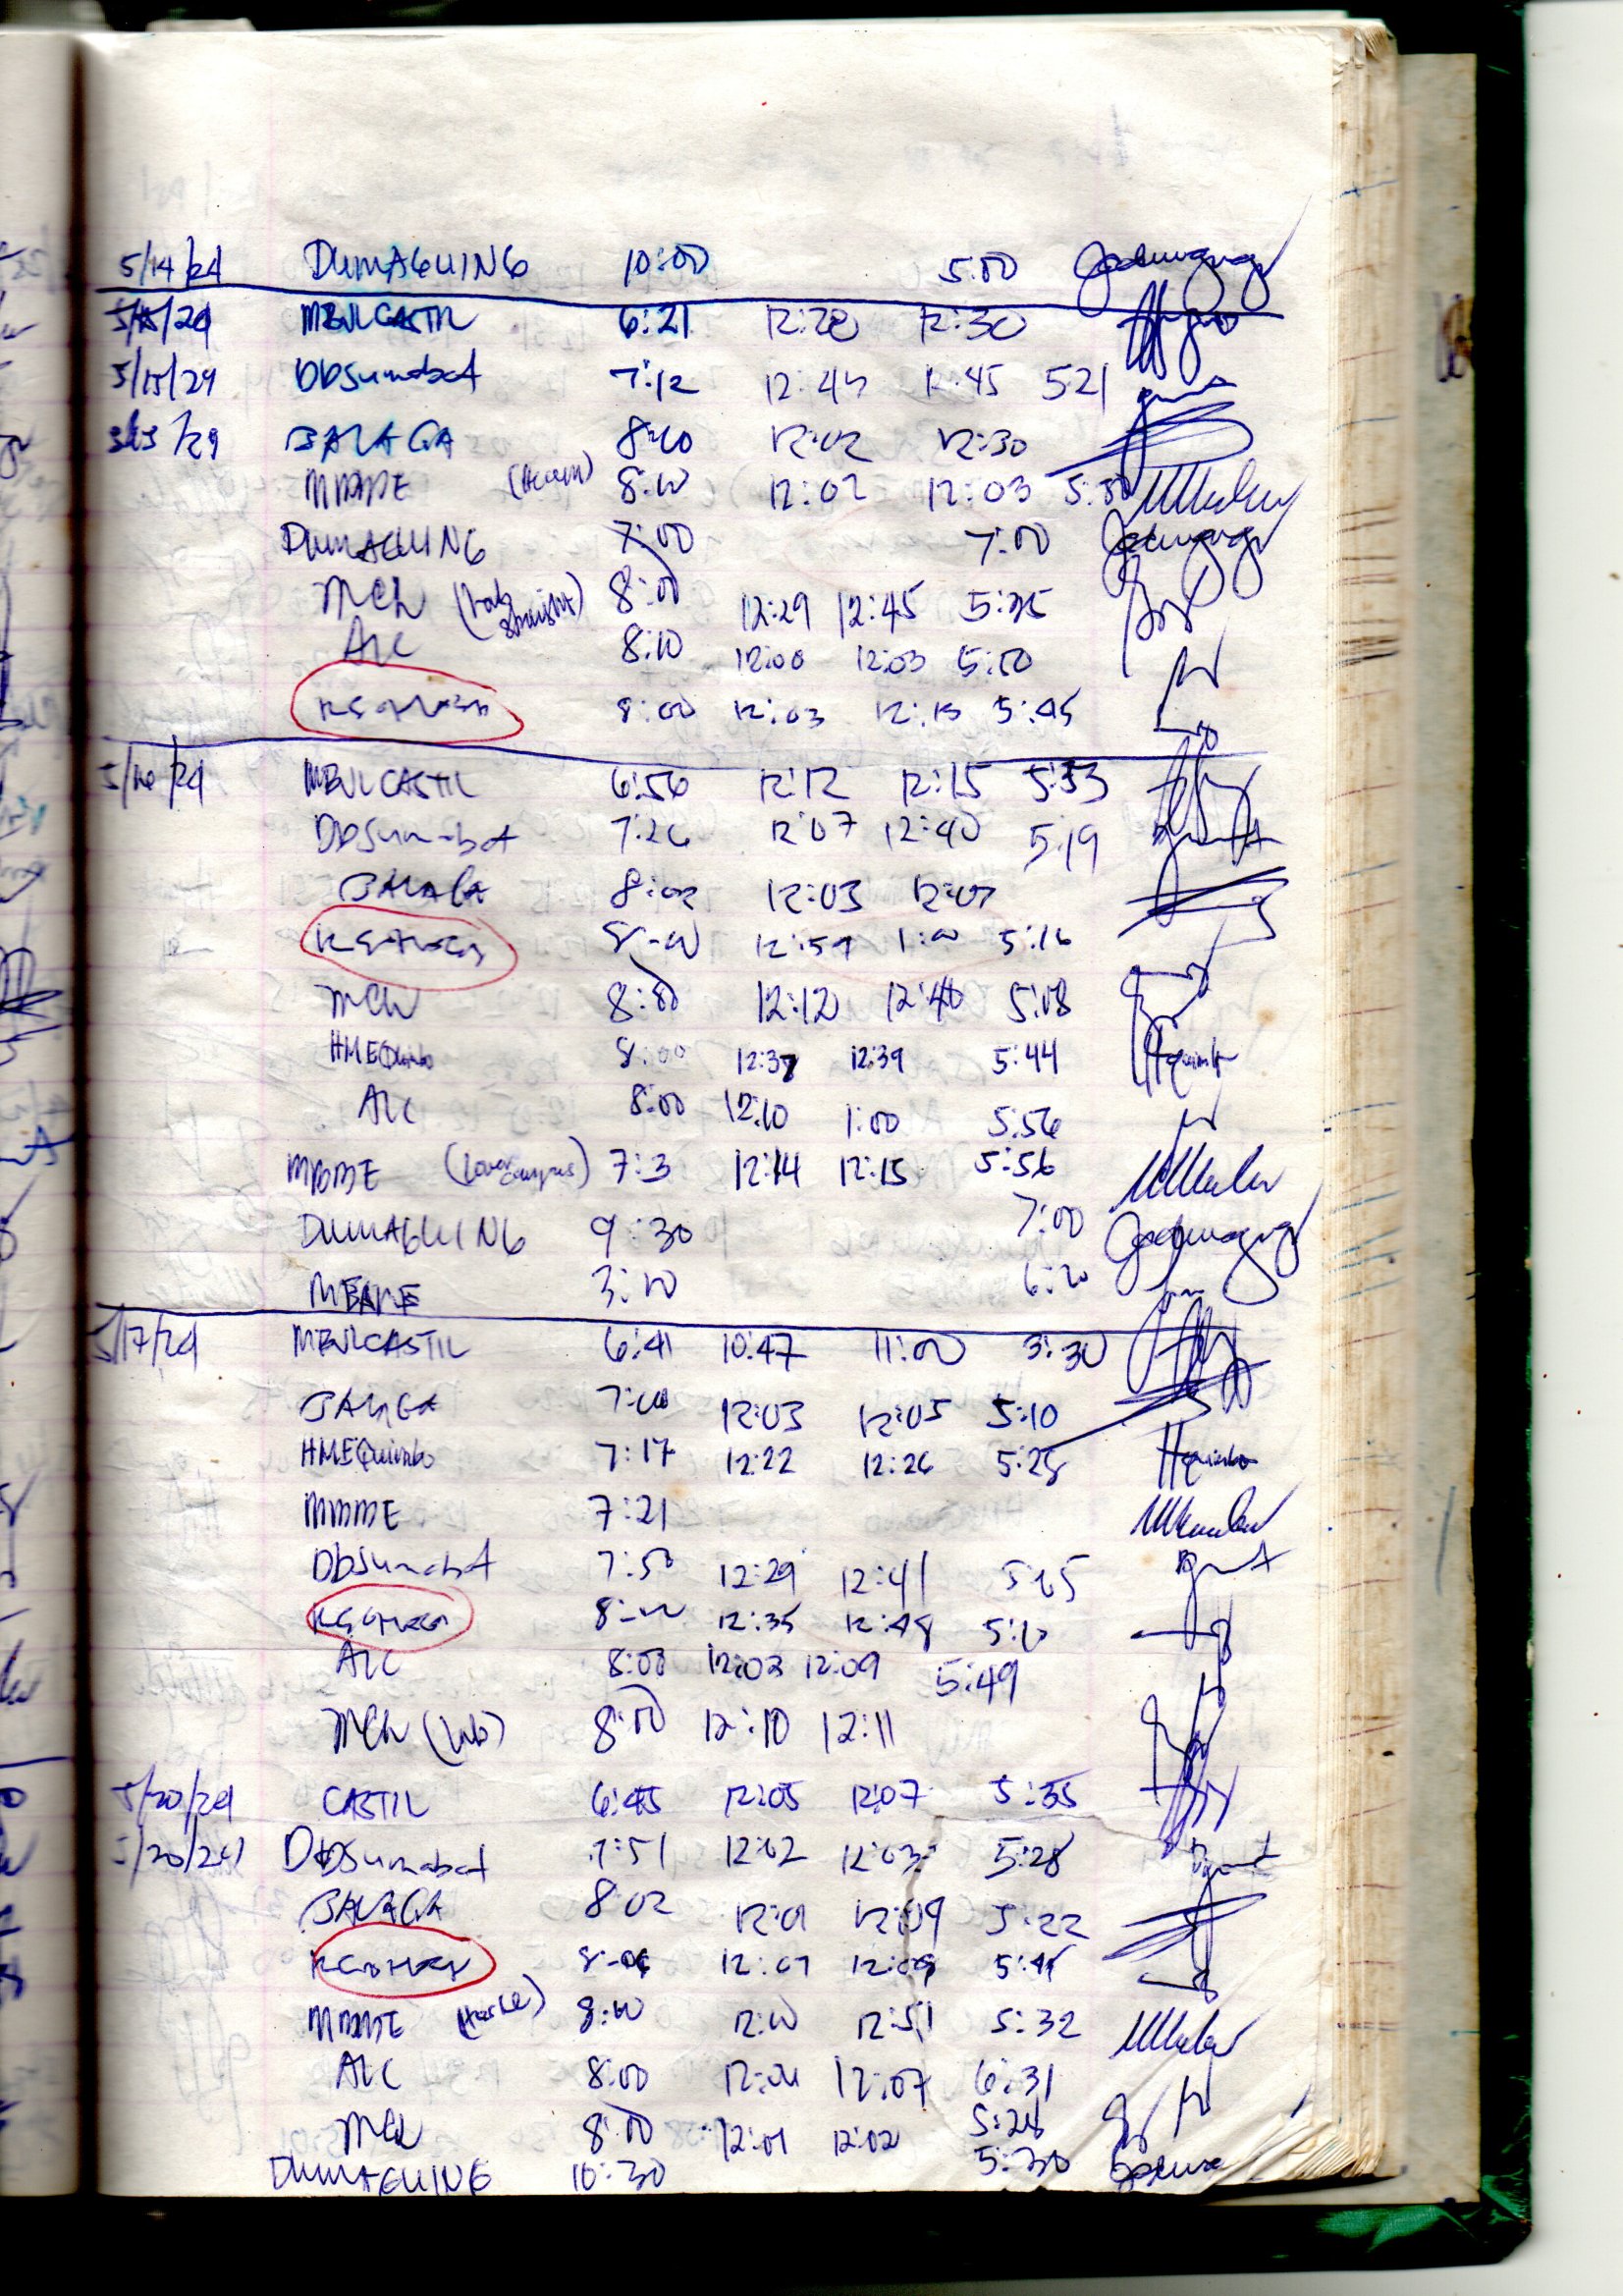 5/14/24 DUMAGUING 10:00 5:00
5/15/24 MBVLCASTIL 6:21 12:28 12:30
5/15/24 DDSumabat 7:12 12:45 12:45 5:21
BALAGA 8:00 12:02 12:30
MMME 8:00 12:02 12:03
DUMAGUING 7:00 7:00
MCh 8:00 12:29 12:45 5:35
ALC 8:10 12:00 12:03 5:50
8:00 12:03 12:13 5:45
5/16/24 MBVLCASTIL 6:56 12:12 12:15 5:53
DDSumabat 7:26 12:07 12:40 5:19
BALAGA 8:02 12:03 12:07
8:00 12:59 1:00 5:16
MCh 8:00 12:12 12:40 5:08
HMEQuimbo 8:00 12:37 12:39 5:44
ALC 8:00 12:10 1:00 5:56
MMME (Lower campus) 7:3 12:14 12:15 5:56
DUMAGUING 9:30 7:00
3:10 6:20
5/17/24 MBVLCASTIL 6:41 10:47 11:00 3:30
BALAGA 7:00 12:03 12:05 5:10
HMEQuimbo 7:17 12:22 12:26 5:28 Hquimbo
MMME 7:21
DDSumabat 7:50 12:29 12:41
8:00 12:35 12:48 5:10
ALC 8:00 12:02 12:09 5:49
MCh (Lab) 8:00 12:10 12:11
5/20/24 CASTIL 6:45 12:05 12:07 5:35
5/20/24 DDSumabat 7:51 12:02 12:03 5:28
BALAGA 8:02 12:01 12:09 5:22
12:07 12:09
MMME 8:00 12:10 12:51 5:32
ALC 8:00 12:07 6:31
MCh 8:00 12:01 12:02 5:28
DUMAGUING 10:30 5:30